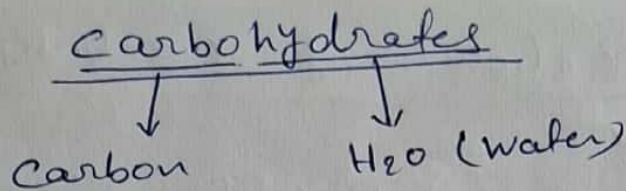 Carbohydrates
Carbon H2O (Water)